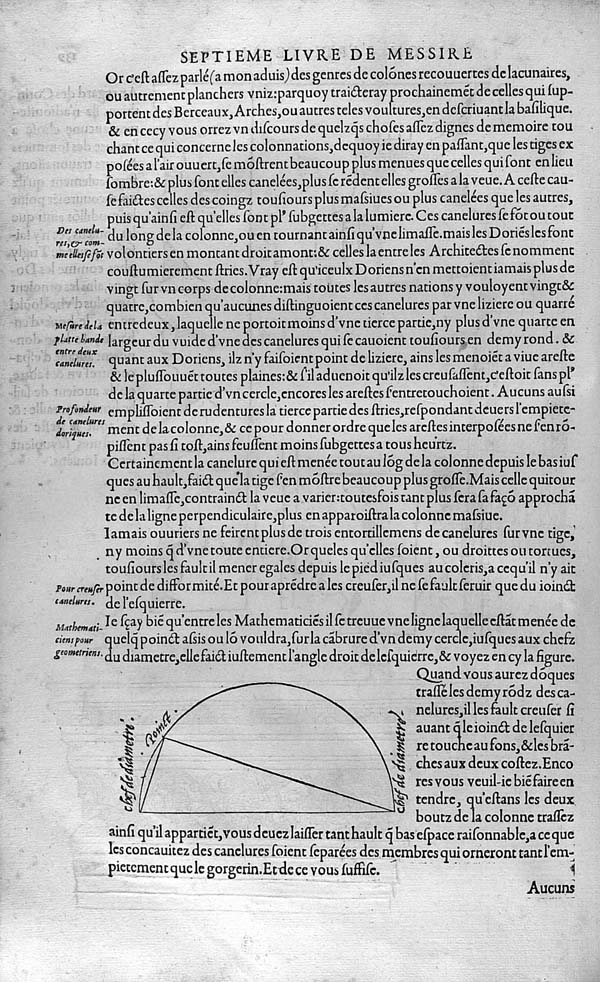 SEPTIEME LIVRE DE MESSIRE
Or c'est assez parlé (a mon aduis) des genres de colónes recouuertes de lacunaires,
ou autrement planchers vniz: parquoy traicteray prochainemēt de celles qui sup-
portent des Berceaux, Arches, ou autres teles voultures, en descriuant la basilique.
& en cecy vous orrez vn discours de quelzq̄s choses assez dignes de memoire tou
chant ce qui concerne les colonnations, dequoy ie diray en passant, que les tiges ex
posées a l'air ouuert, se mōstrent beaucoup plus menues que celles qui sont en lieu
sombre: & plus sont elles canelées, plus se rēdent elles grosses a la veue. A ceste cau-
se faictes celles des coingz tousiours plus massiues ou plus canelées que les autres,
puis qu'ainsi est qu'elles sont pl' subgettes a la lumiere. Ces canelures se fōt ou tout
Des canelu-
res, & com-
me elles se fōt
du long de la colonne, ou en tournant ainsi qu'vne limasse. mais les Doriēs les font
volontiers en montant droit amont: & celles la entre les Architectes se nomment
coustumierement stries. Vray est qu'iceulx Doriens n'en mettoient iamais plus de
vingt sur vn corps de colonne: mais toutes les autres nations y vouloyent vingt &
quatre, combien qu'aucunes distinguoient ces canelures par vne liziere ou quarré
Mesure de la
platte bande
entre deux
canelures.
entredeux, laquelle ne portoit moins d'vne tierce partie, ny plus d'vne quarte en
largeur du vuide d'vne des canelures qui se cauoient tousiours en demy rond. &
quant aux Doriens, ilz n'y faisoient point de liziere, ains les menoiēt a viue areste
& le plussouuēt toutes plaines: & s'il aduenoit qu'ilz les creusassent, c'estoit sans pl'
de la quarte partie d'vn cercle, encores les arestes s'entretouchoient. Aucuns aussi
Profondeur
de canelures
doriques.
emplissoient de rudentures la tierce partie des stries, respondant deuers l'empiete-
ment de la colonne, & ce pour donner ordre que les arestes interposées ne s'en rō-
pissent pas si tost, ains feussent moins subgettes a tous heurtz.
Certainement la canelure qui est menée tout au lōg de la colonne depuis le bas ius
ques au hault, faict que la tige s'en mōstre beaucoup plus grosse. Mais celle qui tour
ne en limasse, contrainct la veue a varier: toutesfois tant plus sera sa façō approchā
te de la ligne perpendiculaire, plus en apparoistra la colonne massiue.
Iamais ouuriers ne feirent plus de trois entortillemens de canelures sur vne tige,
ny moins q̄ d'vne toute entiere. Or queles qu'elles soient, ou droittes ou tortues,
tousiours les fault il mener egales depuis le pied iusques au coleris, a ce qu'il n'y ait
Pour creuser
canelures.
point de difformité. Et pour aprēdre a les creuser, il ne se fault seruir que du ioinct
de l'esquierre.
Mathemati-
ciens pour
geometriens.
Ie sçay biē qu'entre les Mathematiciēs il se treuue vne ligne laquelle estāt menée de
quelq̄ poinct assis ou lō vouldra, sur la cābrure d'vn demy cercle, iusques aux chefz
du diametre, elle faict iustement l'angle droit de lesquierre, & voyez en cy la figure.
Quand vous aurez dōques
trassé les demy rōdz des ca-
nelures, il les fault creuser si
auant q̄ le ioinct de lesquier
re touche au fons, & les brā-
ches aux deux costez. Enco
res vous veuil-ie biē faire en
tendre, qu'estans les deux
boutz de la colonne trassez
chef de diametre.
Poinct.
chef de diametre.
ainsi qu'il appartiēt, vous deuez laisser tant hault q̄ bas espace raisonnable, a ce que
les concauitez des canelures soient separées des membres qui orneront tant l'em-
pietement que le gorgerin. Et de ce vous suffise.
Aucuns